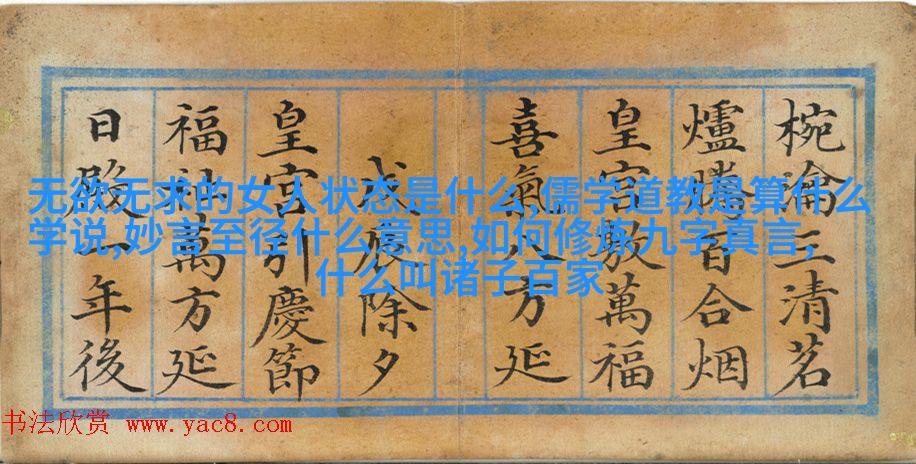 椀瀹三清茗
爐百合烟
皇宫敷萬福
喜氣八方延
除夕
皇宫引慶節
福萬方延
日殿一年後
无欲无求的女人状态是什么,儒学道教是算什么
学说,妙言至径什么意思,如何修炼九字真言,
什么叫诸子百家
书法欣赏 www.yac8.com